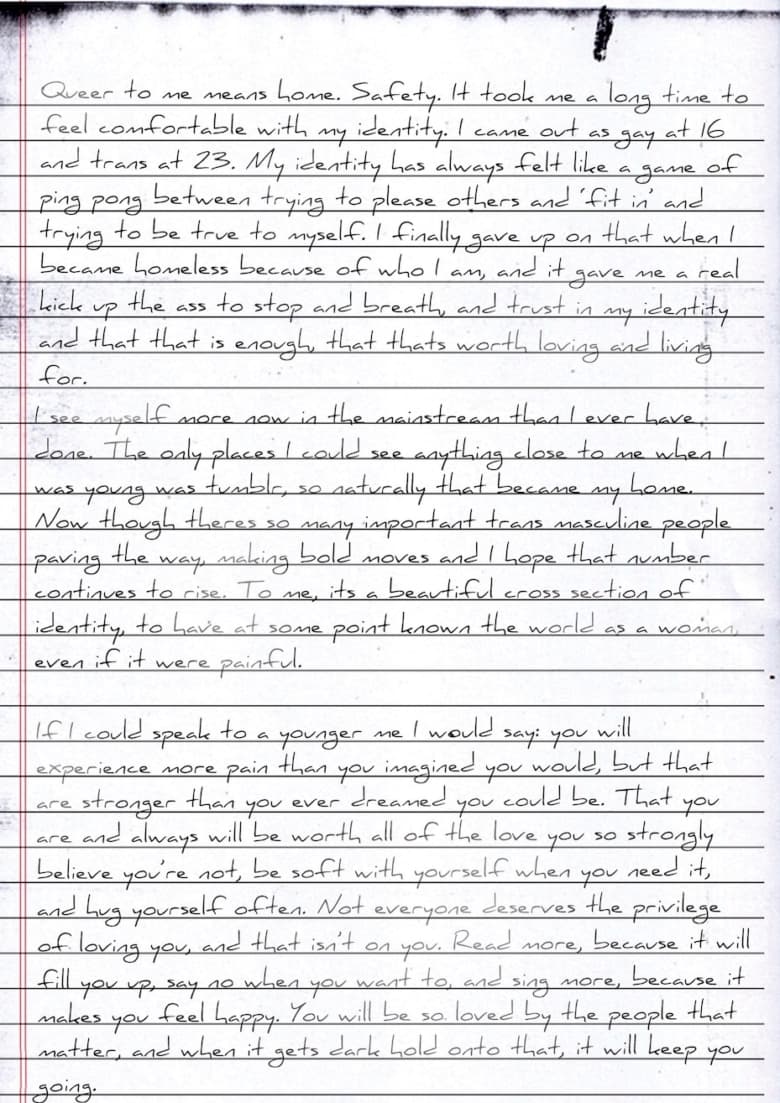 Queer to me means home. Safety. It took me a long time to
feel comfortable with my identity. I came out as gay at 16
and trans at 23. My identity has always felt like a game of
ping pong between trying to please others and 'fit in' and
trying to be true to myself. I finally gave up on that when I
became homeless because of who I am, and it gave me a real
kick up the ass to stop and breath, and trust in my identity
and that that is enough, that thats worth loving and living
for.
I see myself more now in the mainstream than I ever have,
done. The only places I could see anything close to me when I
was young was tumblr, so naturally that became my home.
Now though theres so many important trans masculine people
paving the way, making bold moves and I hope that number
continues to rise. To me, its a beautiful cross section of
identity, to have at some point known the world as a woman,
even if it were painful.
If I could speak to a younger me I would say: you will
experience more pain than you imagined you would, but that
are stronger than you ever dreamed you could be. That you
are and always will be worth all of the love you so strongly
believe you're not, be soft with yourself when you need it,
and hug yourself often. Not everyone deserves the privilege
of loving you, and that isn't on you. Read more, because it will
fill you up, say no when you want to, and sing more, because it
makes you feel happy. You will be so loved by the people that
matter, and when it gets dark hold onto that, it will keep you
going.